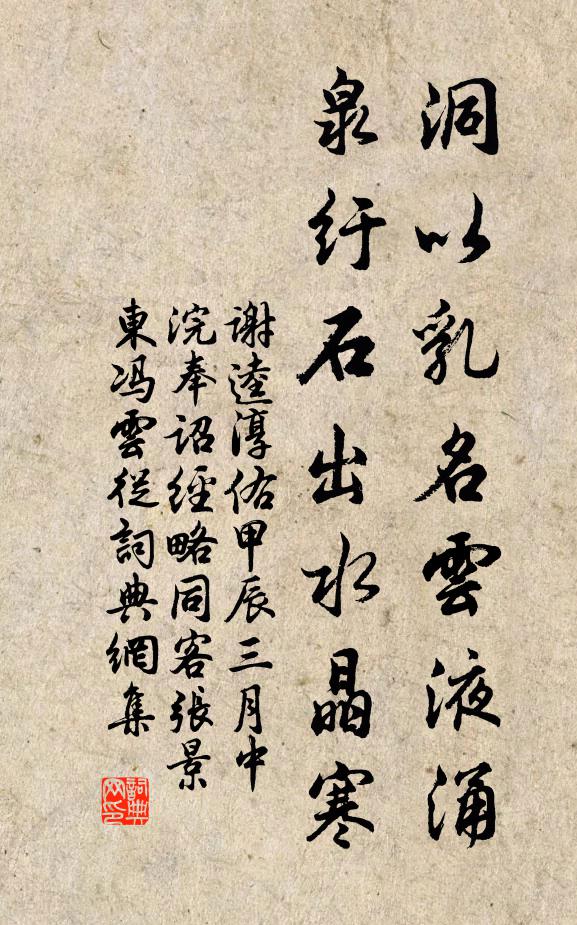 洞以乳名雲液涌
泉紆石出水晶寒
謝逵淳佑甲辰三月中
浣奉詔經略同客張景
東馮雲從詞典網集
詞典网印